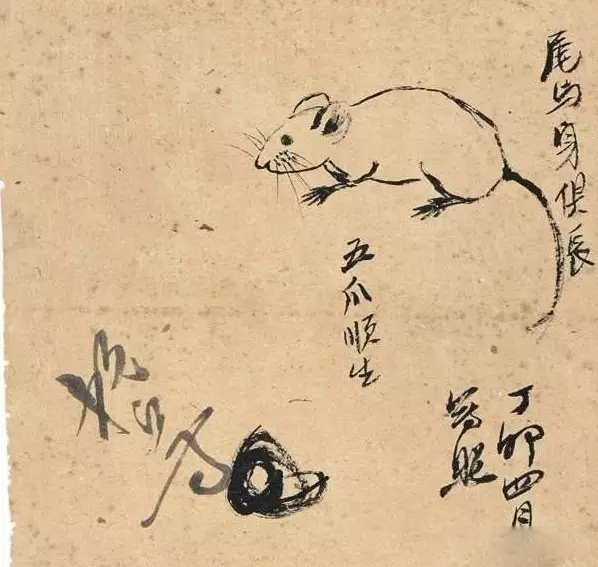 尾与身俱長
五爪順生
丁卯四月
寫照